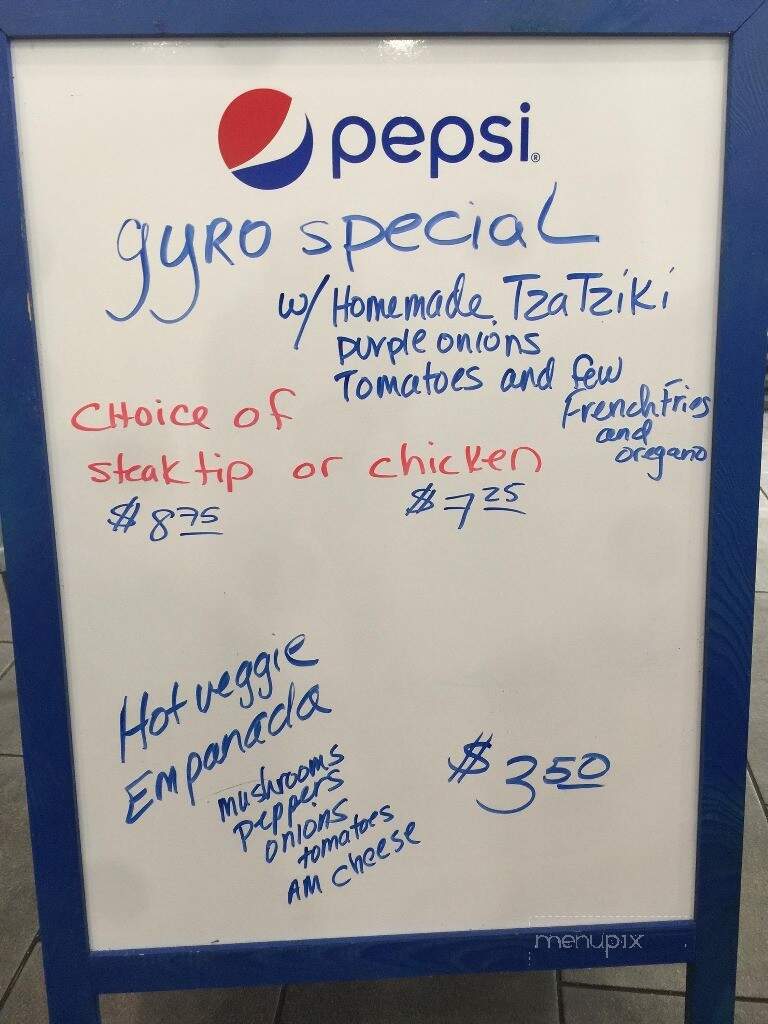 pepsi®
gyRO special
w/ Homemade TzaTziki
purple onions
Tomatoes and few
French fries
and
oregano
CHoice of
steak tip or chicken
$8 75 $7 25
Hot veggie
Empanada
mushrooms
peppers
onions
tomatoes
AM cheese
$3 50
menupix